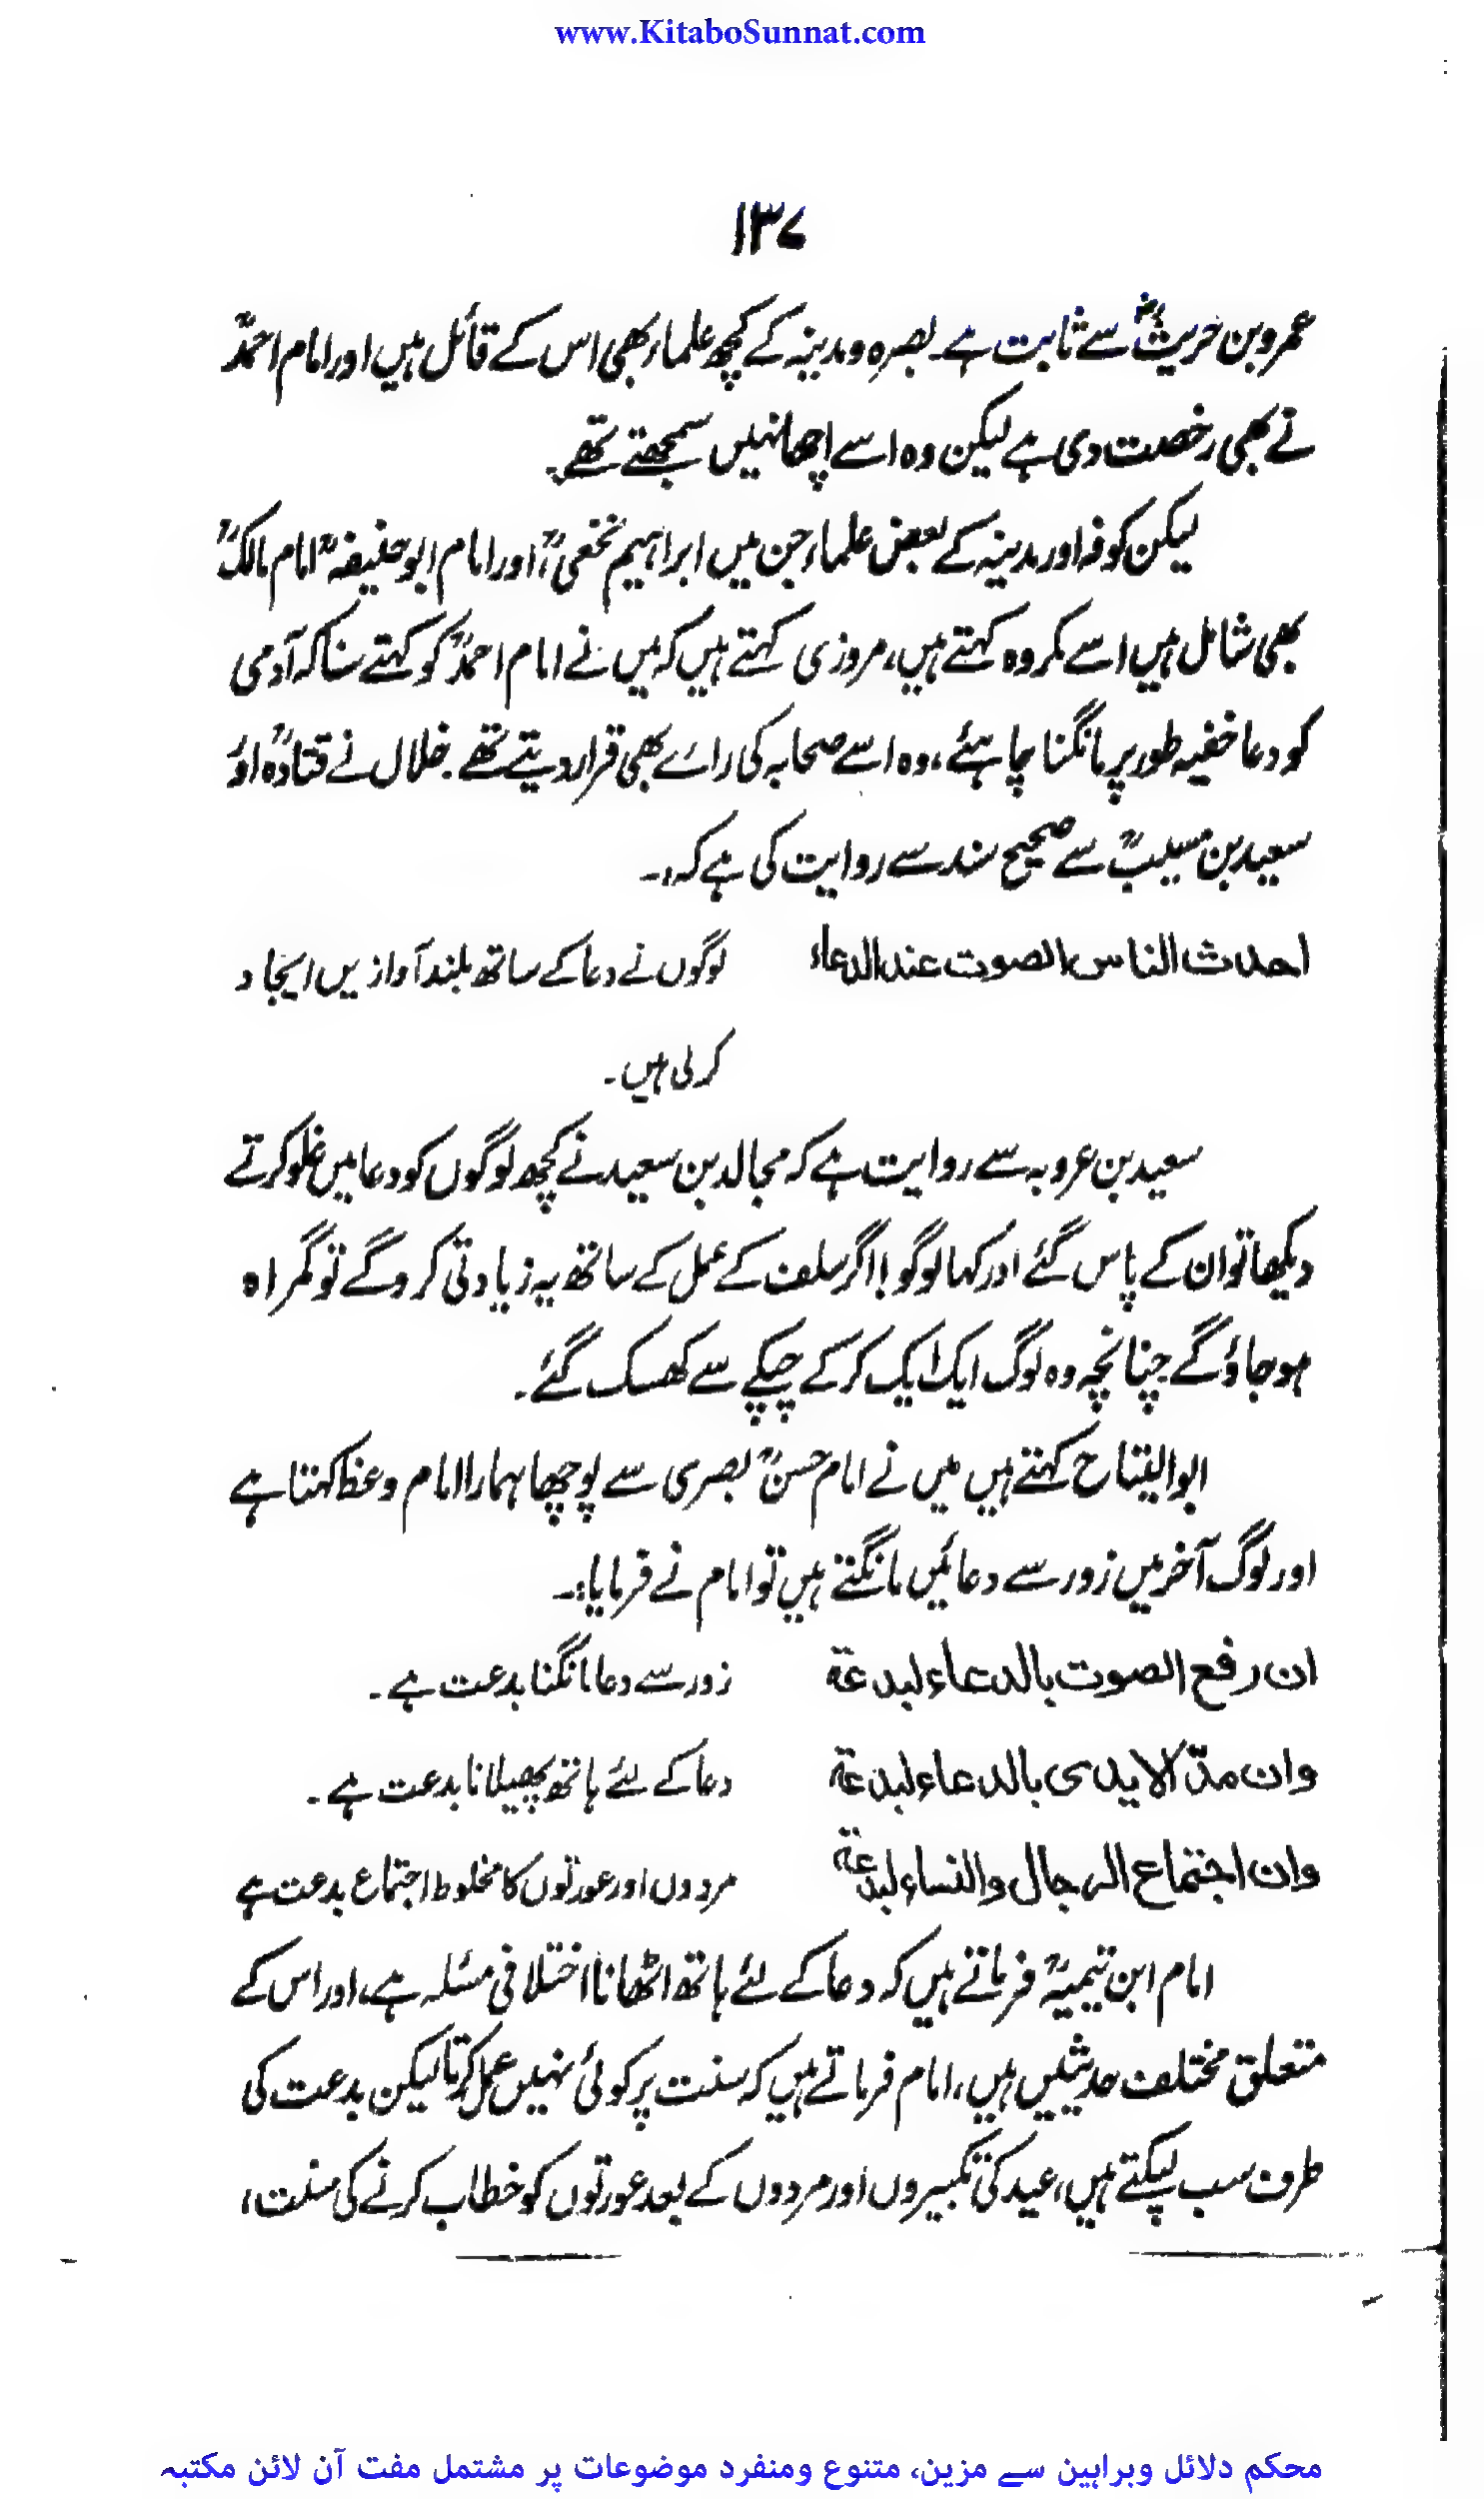 www.KitaboSunnat.com
۱۳۷
عمرو بن حریثؓ سے ثابت ہے۔ بصرہ و مدینہ کے کچھ علماء بھی اس کے قائل ہیں اور امام احمدؒ
نے بھی رخصت دی ہے لیکن وہ اسے اچھا نہیں سمجھتے تھے۔
لیکن کوفہ اور مدینہ کے بعض علماء جن میں ابراہیم نخعیؒ، اور امام ابو حنیفہؒ امام مالکؒ
بھی شامل ہیں اسے مکروہ کہتے ہیں، مروزی کہتے ہیں کہ میں نے امام احمدؒ کو کہتے سنا کہ آدمی
کو دعا خفیہ طور پر مانگنا چاہئے، وہ اسے صحابہ کی رائے بھی قرار دیتے تھے۔ خلال نے قتادہؒ اور
سعید بن مسیبؒ سے صحیح سند سے روایت کی ہے کہ:۔
احدث الناس الصوت عند الدعاء لوگوں نے دعا کے ساتھ بلند آوازیں ایجاد
کر لی ہیں۔
سعید بن عروبہ سے روایت ہے کہ مجالد بن سعید نے کچھ لوگوں کو دعا میں غلو کرتے
دیکھا تو ان کے پاس گئے اور کہا لوگو! اگر سلف کے عمل کے ساتھ یہ زیادتی کرو گے تو گمراہ
ہو جاؤ گے چنانچہ وہ لوگ ایک ایک کر کے چپکے سے کھسک گئے۔
ابو التیاح کہتے ہیں میں نے امام حسنؒ بصری سے پوچھا ہمارا امام وعظ کہتا ہے
اور لوگ آخر میں زور سے دعائیں مانگتے ہیں تو امام نے فرمایا:۔
ان رفع الصوت بالدعاء لبدعة زور سے دعا مانگنا بدعت ہے۔
وان مدّ الایدی بالدعاء لبدعة دعا کے لئے ہاتھ پھیلانا بدعت ہے۔
وان اجتماع الرجال والنساء لبدعة مردوں اور عورتوں کا مخلوط اجتماع بدعت ہے
امام ابن تیمیہؒ فرماتے ہیں کہ دعا کے لئے ہاتھ اٹھانا اختلافی مسئلہ ہے، اور اس کے
متعلق مختلف حدیثیں ہیں، امام فرماتے ہیں کہ سنت پر کوئی نہیں عمل کرتا لیکن بدعت کی
طرف سب لپکتے ہیں، عید کی تکبیروں اور مردوں کے بعد عورتوں کو خطاب کرنے کی سنت،
محکم دلائل وبراہین سے مزین، متنوع ومنفرد موضوعات پر مشتمل مفت آن لائن مکتبہ